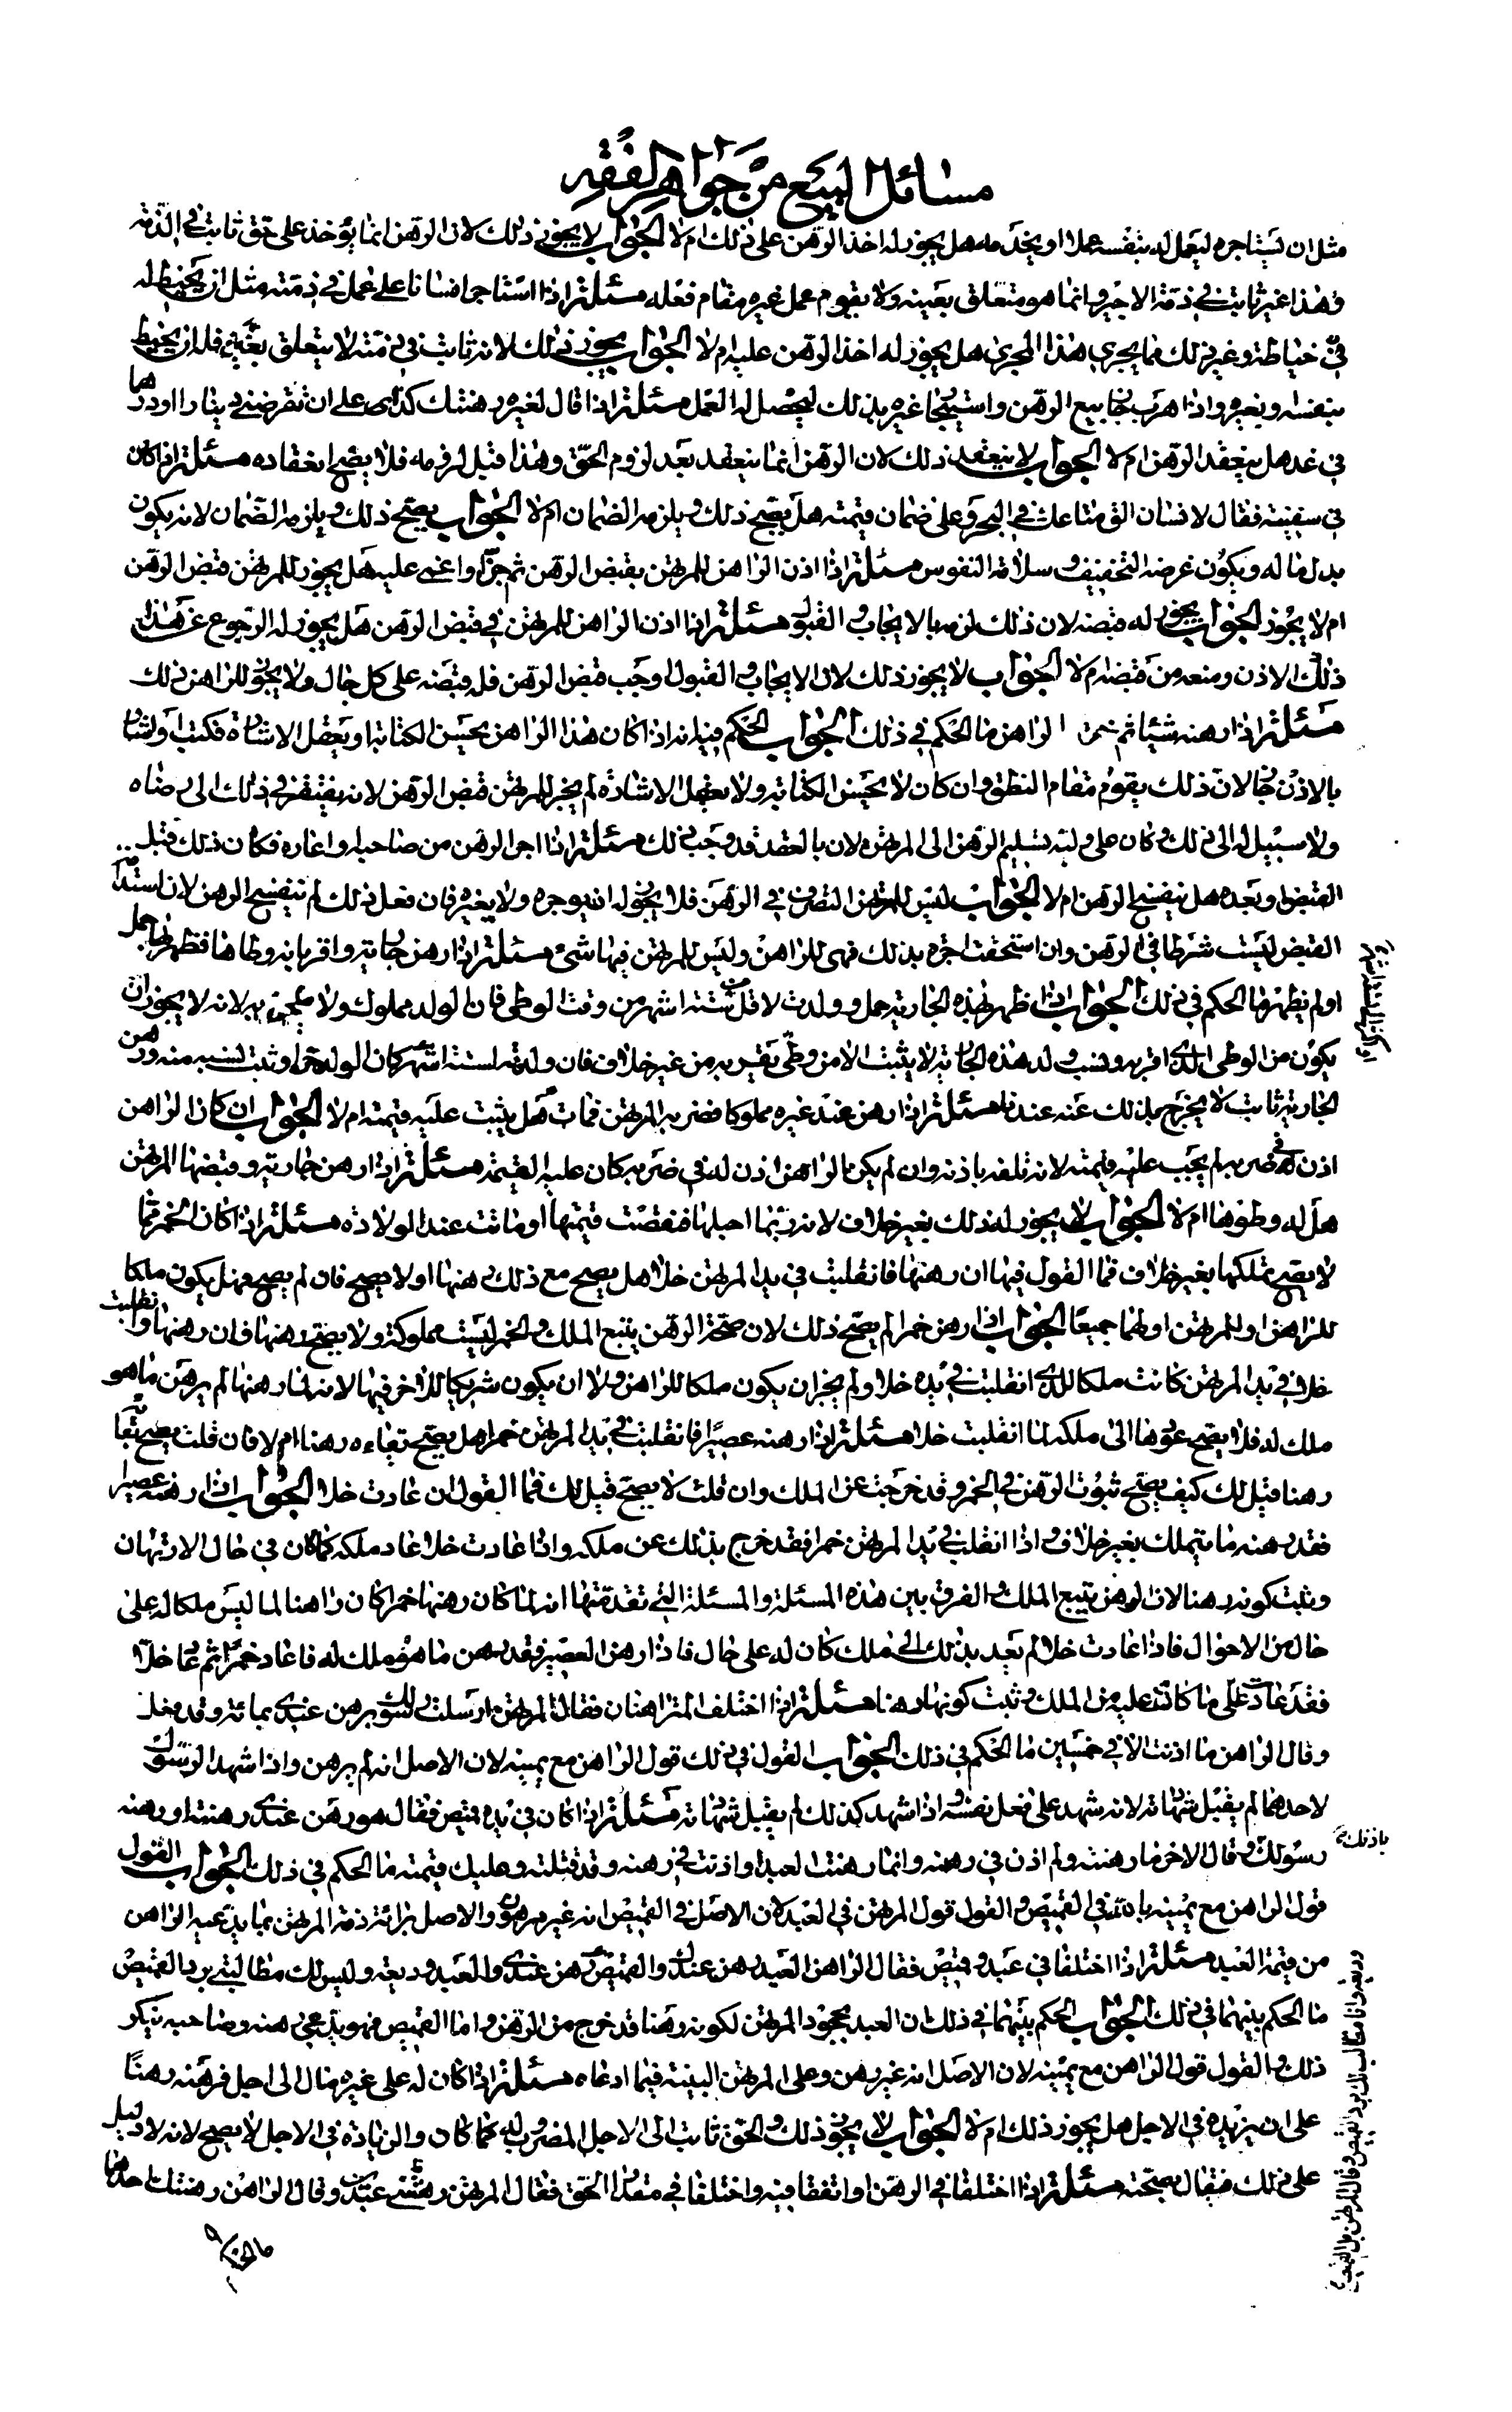 مسائل البيع من جواهر الفقه
مثل ان يستاجره ليعمل له بنفسه عملا او يخدمه هل يجوز له اخذ الرهن على ذلك ام لا الجواب لا يجوز ذلك لان الرهن انما يؤخذ على حق ثابت في الذمة
وهذا غير ثابت في ذمة الاجير وانما هو متعلق بعينه ولا يقوم عمل غيره مقام فعله مسئلة اذا استاجر انسانا على عمل في ذمته مثل ان يخيط له
خياطة وغير ذلك مما يجري هذا المجرى هل يجوز له اخذ الرهن عليه ام لا الجواب يجوز ذلك لانه ثابت في ذمته لا يتعلق بعينه فله ان يخيط
بنفسه وبغيره واذا هرب جاز بيع الرهن واستيجار غيره بذلك ليحصل له العمل مسئلة اذا قال لغيره رهنتك كذا على ان تقرضني دينارا او درهما
في غد هل ينعقد الرهن ام لا الجواب لا ينعقد ذلك لان الرهن انما ينعقد بعد لزوم الحق وهذا قبل لزومه فلا يصح انعقاده مسئلة اذا كان
في سفينة فقال لانسان الق متاعك في البحر وعلى ضمان قيمته هل يصح ذلك ويلزمه الضمان ام لا الجواب يصح ذلك ويلزمه الضمان لانه يكون
بدل ماله ويكون غرضه التخفيف وسلامة النفوس مسئلة اذا اذن الراهن للمرتهن بقبض الرهن ثم جن او اغمى عليه هل يجوز للمرتهن قبض الرهن
ام لا يجوز الجواب يجوز له قبضه لان ذلك لزمه بالايجاب والقبول مسئلة اذا اذن الراهن للمرتهن في قبض الرهن هل يجوز له الرجوع عن
ذلك الاذن ومنعه من قبضه ام لا الجواب لا يجوز ذلك لان الايجاب والقبول اوجب قبض الرهن فله قبضه على كل حال ولا يجوز للراهن ذلك
مسئلة اذا رهنه شيئا ثم خرس الراهن ما الحكم في ذلك الجواب الحكم فيه انه اذا كان هذا الراهن يحسن الكتابة او يعقل الاشارة فكتب او اشار
بالاذن جاز لان ذلك يقوم مقام النطق وان كان لا يحسن الكتابة ولا يعقل الاشارة لم يجز للمرتهن قبض الرهن لانه يفتقر في ذلك الى رضاه
ولا سبيل له الى ذلك وكان على وليه تسليم الرهن الى المرتهن لان بالعقد قد وجب ذلك مسئلة اذا اجر الرهن من صاحبه او اعاره فكان ذلك قبل
القبض او بعده هل ينفسخ الرهن ام لا الجواب ليس للمرتهن التصرف في الرهن فلا يجوز له ان يوجره ولا يعيره فان فعل ذلك لم ينفسخ الرهن لان استدامة
القبض ليست شرطا في الرهن وان استحقت اجرة بذلك فهي للراهن وليس للمرتهن فيها شئ مسئلة اذا رهن جارية واقر بانه وطاها فظهر بها حمل
او لم يظهر ما الحكم في ذلك الجواب اذا ظهر بهذه الجارية حمل وولدت لاقل من ستة اشهر من وقت الوطى فان الولد مملوك ولا يلحق به لانه لا يجوز ان
يكون من الوطى الذي اقر به ونسب ولد هذه الجارية لا يثبت الا من وطى يقر به من غير خلاف فان ولدته لستة اشهر كان الولد حرا وثبت نسبه منه ورهن
الجارية ثابت لا يخرج بذلك عنه عندنا مسئلة اذا رهن عند غيره مملوكا فضربه المرتهن فمات هل يثبت عليه قيمته ام لا الجواب ان كان الراهن
اذن له في ضربه لم يجب عليه قيمته لانه تلفه باذنه وان لم يكن الراهن اذن له في ضربه كان عليه القيمة مسئلة اذا رهن جارية وقبضها المرتهن
هل له وطؤها ام لا الجواب لا يجوز له ذلك بغير خلاف لانه ربما احبلها فنقصت قيمتها او ماتت عند الولادة مسئلة اذا كان الخمر مما
لا يصح تملكها بغير خلاف فما القول فيها ان رهنها فانقلبت في يد المرتهن خلا هل يصح مع ذلك رهنها او لا يصح فان لم يصح فهل يكون ملكا
للراهن او للمرتهن او لهما جميعا الجواب اذا رهن خمرا لم يصح ذلك لان صحة الرهن يتبع الملك والخمر ليست مملوكة ولا يصح رهنها فان رهنها وانقلبت
خلا في يد المرتهن كانت ملكا للذي انقلبت في يده خلا ولم يجز ان يكون ملكا للراهن ولا ان يكون شريكا للاخر فيها لانه لما رهنها لم يرهن ما هو
ملك له فلا يصح عودها الى ملكه لما انقلبت خلا مسئلة اذا رهنه عصيرا فانقلبت في يد المرتهن خمرا هل يصح بقاءه رهنا ام لا فان قلت يصح بقائه
رهنا قيل لك كيف يصح ثبوت الرهن في الخمر وقد خرجت عن الملك وان قلت لا يصح قيل لك فما القول ان عادت خلا الجواب اذا رهنه عصيرا
فقد رهنه ما يتملك بغير خلاف واذا انقلب في يد المرتهن خمرا فقد خرج بذلك عن ملكه واذا عادت خلا عاد ملكه كما كان في حال الارتهان
وثبت كونه رهنا لان الرهن يتبع الملك والفرق بين هذه المسئلة والمسئلة التي تقدمتها انه لما كان رهنها خمرا كان راهنا لما ليس ملكا له على
حال من الاحوال فاذا عادت خلا لم يعد بذلك الى ملك كان له على حال فاذا رهن العصير فقد رهن ما هو ملك له فاعاد خمرا ثم عاد خلا
فقد عاد على ما كانت عليه من الملك وثبت كونها رهنا مسئلة اذا اختلف المتراهنان فقال المرتهن ارسلت رسولك برهن عندي بمائة وقد فعل
وقال الراهن ما اذنت الا في خمسين ما الحكم في ذلك الجواب القول في ذلك قول الراهن مع يمينه لان الاصل انه لم يرهن واذا شهد الرسول
لاحدهما لم يقبل شهادته لانه شهد على فعل نفسه واذا شهد كذلك لم يقبل شهادته مسئلة اذا كان في يده قميص فقال هو رهن عندي رهنته او رهنه
رسولك باذنك وقال الاخر ما رهنته ولم اذن في رهنه وانما رهنت العبد واذنت في رهنه وقد قتلته وعليك قيمته ما الحكم في ذلك الجواب القول
قول الراهن مع يمينه بالله في القميص والقول قول المرتهن في العبد لان الاصل في القميص انه غير مرهون والاصل برائة ذمة المرتهن مما يدعيه الراهن
من قيمة العبد مسئلة اذا اختلفا في عبد وقميص فقال الراهن العبد رهن عندك والقميص رهن عندي والعبد وديعة وليس لك مطالبتي برد القميص
ما الحكم بينهما في ذلك الجواب الحكم بينهما في ذلك ان العبد بجحود المرتهن لكونه رهنا قد خرج من الرهن واما القميص فهو يدعي رهنه وصاحبه ينكر
ذلك والقول قول الراهن مع يمينه لان الاصل انه غير رهن وعلى المرتهن البينة فيما ادعاه مسئلة اذا كان له على غيره مال الى اجل فرهنه رهنا
على ان يزيده في الاجل هل يجوز ذلك ام لا الجواب لا يجوز ذلك والحق ثابت الى الاجل المضروب له كما كان والزيادة في الاجل لا يصح لانه لا دليل
على ذلك فيقال بصحته مسئلة اذا اختلفا في الرهن او اتفقا فيه واختلفا في مقدار الحق فقال المرتهن رهنتني عبدين وقال الراهن رهنتك احدهما
وديعة وانا مطالب لك برد القميص وقال المرتهن بل القميص